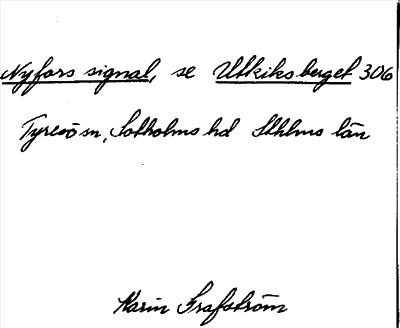 Nyfors signal, se Utkiksberget 306
Tyresö sn, Sotholms hd Sthlms län
Karin Grafström